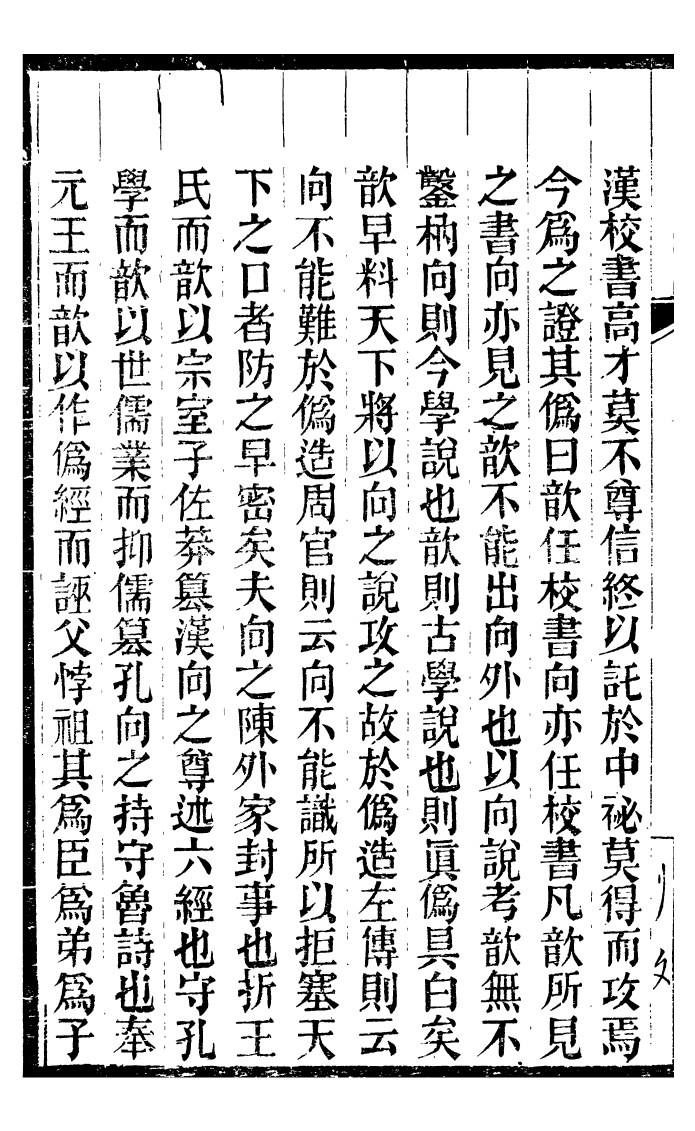 漢校書高才莫不尊信終以託於中祕莫得而攻焉
今爲之證其僞曰歆任校書向亦任校書凡歆所見
之書向亦見之歆不能出向外也以向說考歆無不
鑿枘向則今學說也歆則古學說也則眞僞具白矣
歆早料天下將以向之說攻之故於僞造左傳則云
向不能難於僞造周官則云向不能識所以拒塞天
下之口者防之早密矣夫向之陳外家封事也折王
氏而歆以宗室子佐莽篡漢向之尊述六經也守孔
學而歆以世儒業而抑儒篡孔向之持守魯詩也奉
元王而歆以作僞經而誣父悖祖其爲臣爲弟爲子